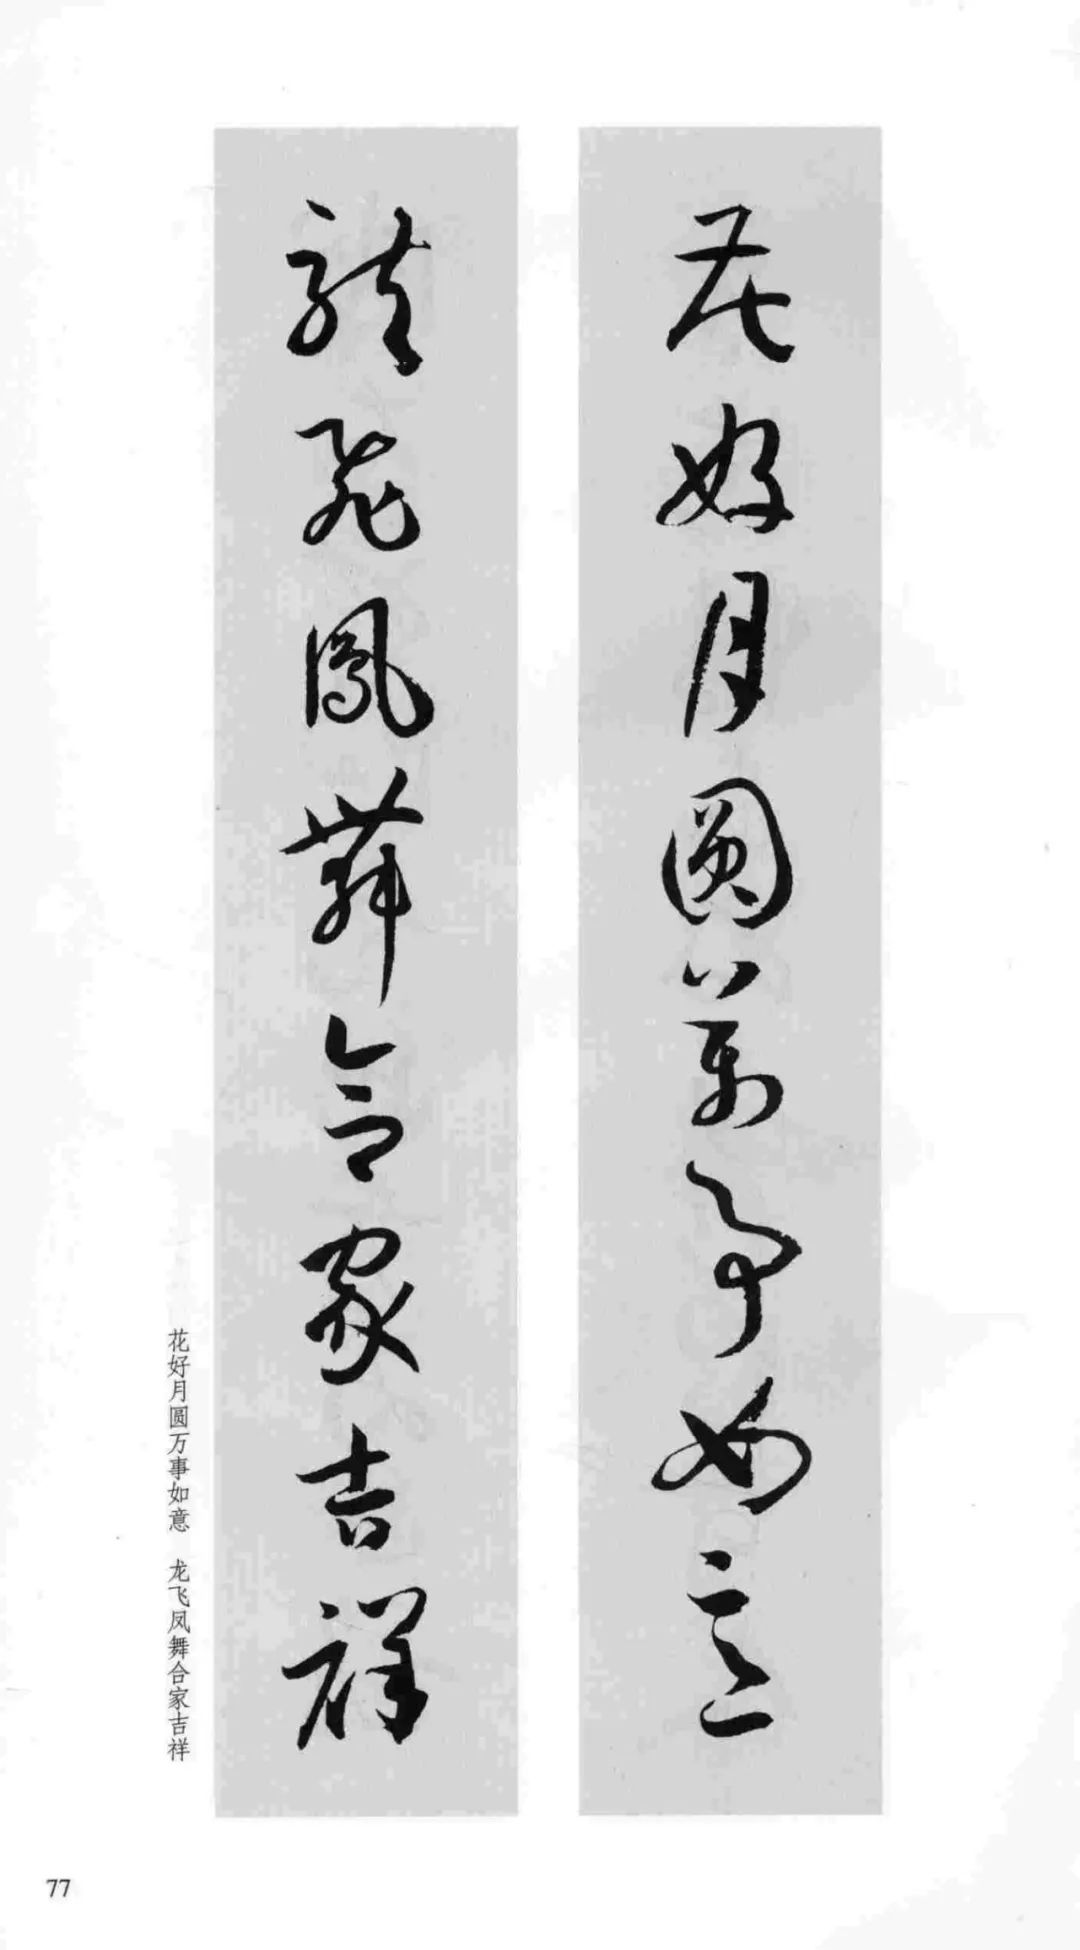 花好月圆万事如意
龍飛鳳舞合家吉祥
花好月圆万事如意 龙飞凤舞合家吉祥
77